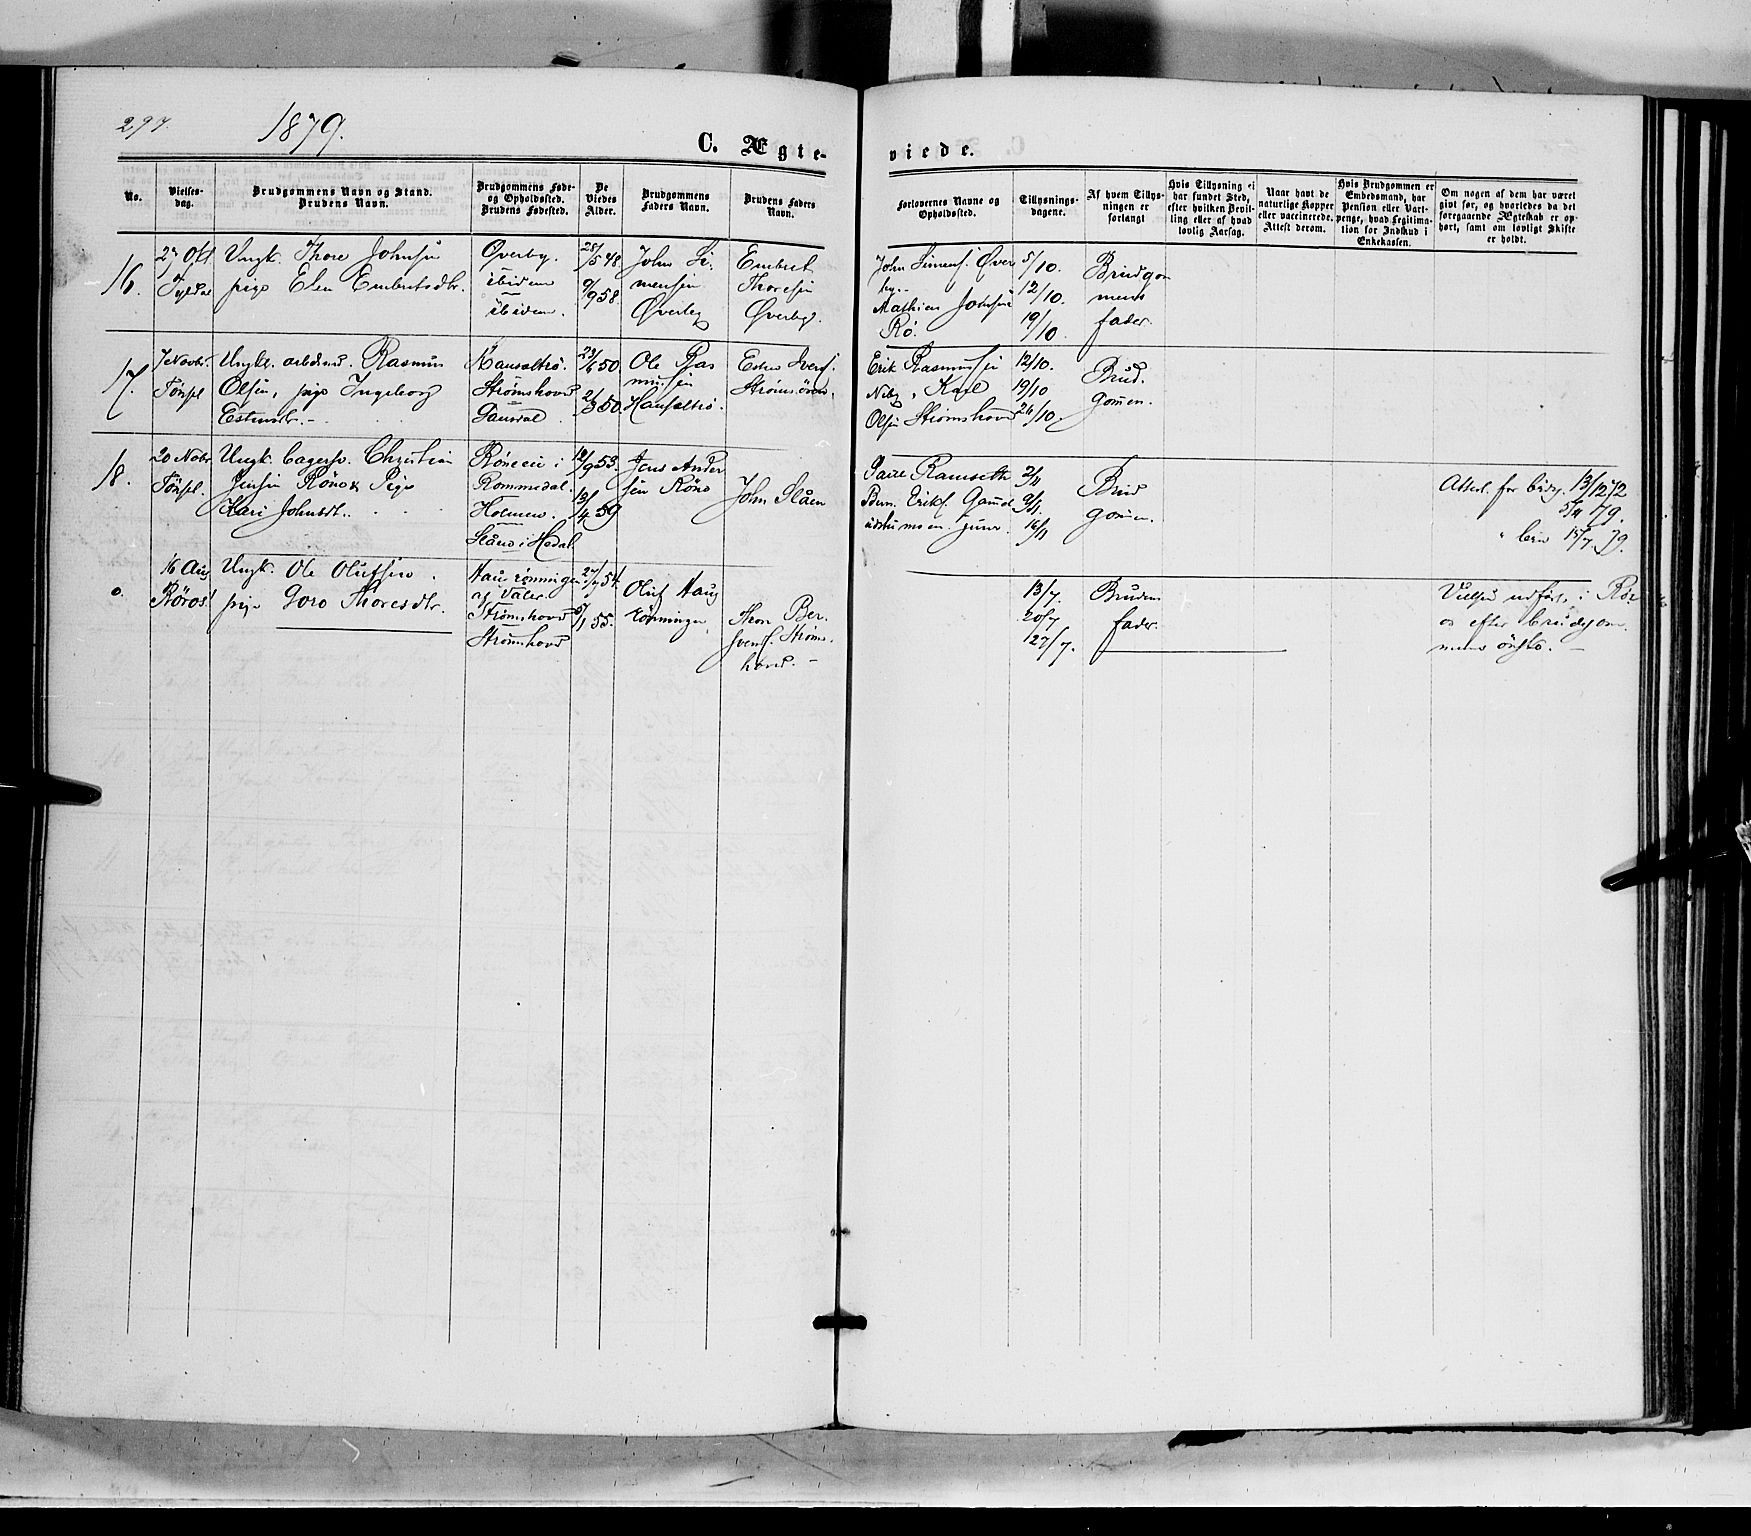 297.
1879.
C. Ægte-
viede.
No.
Vielses-
dag.
Brudgommens Navn og Stand.
Brudens Navn.
Brudgommens Føde-
og Opholdssted.
Brudens Fødested.
De
Viedes
Alder.
Brudgommens
Faders Navn.
Brudens Faders
Navn.
Forlovernes Navne og
Opholdssted.
Tillysnings-
dagene.
Af hvem Tillys-
ningen er
forlangt
Hvis Tillysning ei
har fundet Sted,
efter hvilken Bevil-
ling eller af hvad
lovlig Aarsag.
Naar havt de
naturlige Kopper
eller vaccinerede.
Attest derom.
Hvis Brudgommen er
Embedsmand, har
Pension eller Vart-
penge, hvad Legitima-
tion for Indskud i
Enkekassen.
Om nogen af dem har været
gift før, og hvorledes da det
foregaaende Ægteskab er op-
hørt, samt om lovligt Skifte
er holdt.
16.
27 Okt
Tyldal
Ungk. Thore Johnsen
pige Elen Embretsdtr.
Øverby.
ibidem
ibidem.
28/5 48.
9/9 58
John Si-
mensen
Øverby
Embret
Thoresen
Øverby.
John Simens. Øver
by.
Mathias Johnsen
Rø.
5/10.
12/10.
19/10.
Brudgom
mens
fader.
17.
7 Novbr
Tønset
Ungk. arbeidsmd. Rasmus
Olsen, pige Ingeborg
Estensdtr.
Strømshoved
Ole Ras
musen
Erik Rasmussen
Neby, Karl
Olsen Strømshoved
12/10.
19/10
26/10.
Brud
gommen.
18.
20 Nobr
Tønset.
Ungk. Christian
Jensen Rønæ Pige
Kari Johnsdt.
Rommedal.
12/9 53.
13/4 59
Jens Ander
sen Rønæ
John Slåen
Ramseth
2/11
9/11
16/11
Brud
gommen.
Attest. for bådg. 13/12 72
5/11 79.
15/7 79.
0.
16 Aug
Røros!
Ungk. Ole Olufsen.
pige Goro Thoresdtr.
Haugrønningen
af Våler
Strømshoved
Strømshoved
27/7 54.
5/1 55.
Oluf Haug
rønningen,
Thore Ber
svens. Strøms
hoved. –
13/7.
20/7
27/7.
Brudens
fader.
Vielse udført i Rø-
os efter brudgom-
mens ønske. –